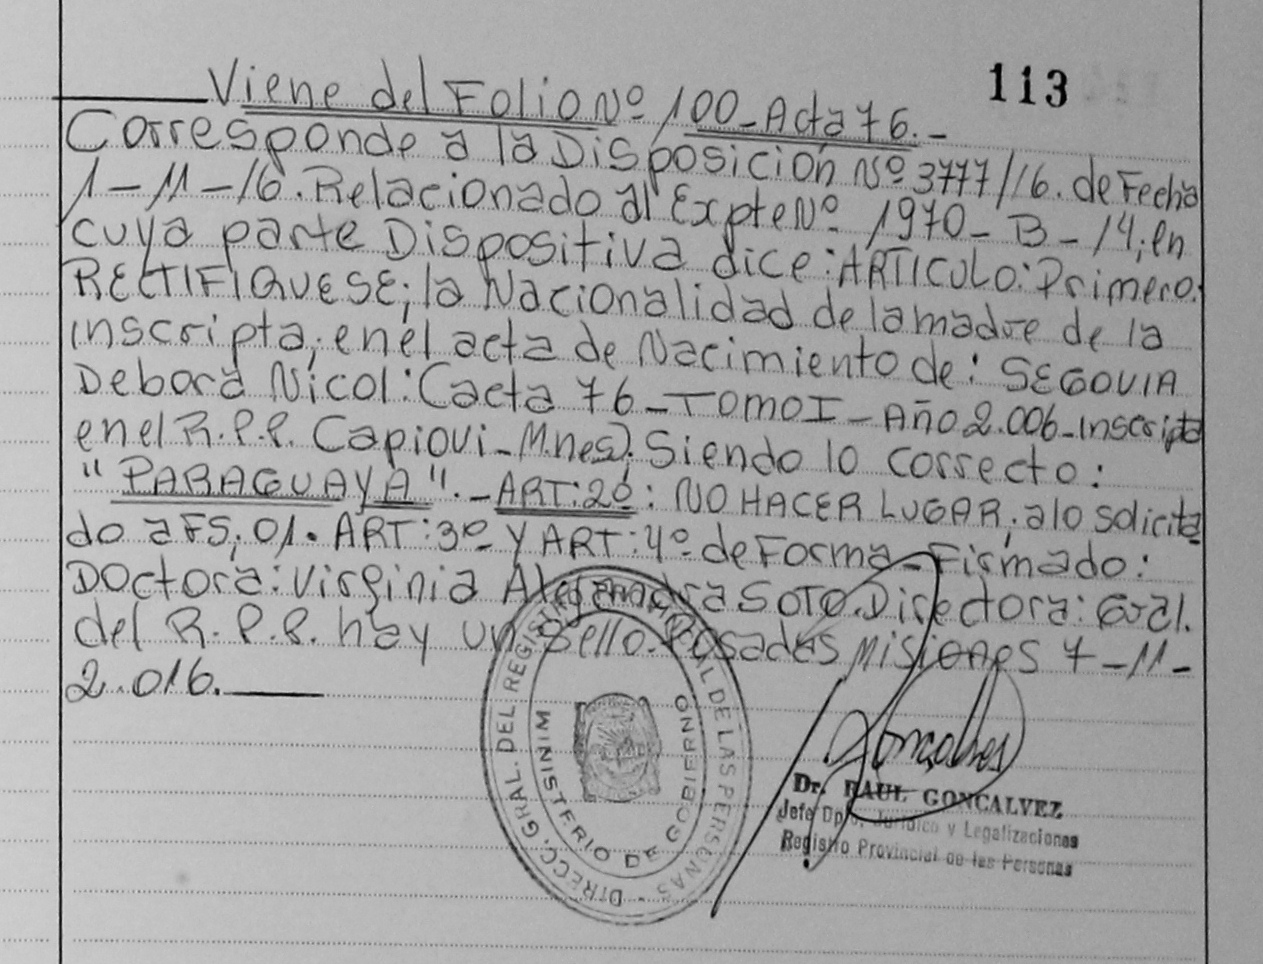 113
Viene del Folio Nº 100_Acta 76.-
Corresponde a la Disposición Nº 3777/16. de Fecha
1-11-16. Relacionado al Expte Nº 1970-B-14; en
cuya parte Dispositiva dice: ARTICULO: Primero:
RECTIFIQUESE; la Nacionalidad de la madre de la
inscripta; en el acta de Nacimiento de: SEGOVIA
Debora Nicol: (acta 76_TOMO I_Año 2.006_inscripta
en el R.P.P. Capiovi_Mnes). Siendo lo correcto:
"PARAGUAYA"._ART:2º: NO HACER LUGAR; a lo solicita
do a FS; 01. ART:3º Y ART:4º de Forma_Firmado:
Doctora: Virginia Alejandra SOTO. Directora: Gral.
del R.P.P. hay un sello. Posadas Misiones 7-11-
2.016.
DIRECC. GRAL. DEL REGISTRO PROVINCIAL DE LAS PERSONAS -
MINISTERIO DE GOBIERNO
Goncalves
Dr. RAUL GONCALVEZ
Jefe Dpto. Jurídico y Legalizaciones
Registro Provincial de las Personas